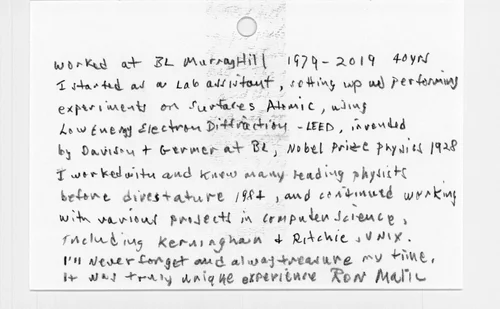 worked at BL Murray Hill 1979-2019 40yrs
I started as a Lab assistant, setting up and performing
experiments on Surfaces Atomic, using
Low Energy Electron Diffraction -LEED, invented
by Davison + Germer at BL, Nobel Prize physics 1928
I worked with and knew many leading physists
before divestature 1984, and continued working
with various projects in computer science,
Including Kerningham & Ritchie, UNIX.
I'll Never forget and always treasure my time,
It was truly unique experience Ron Malic